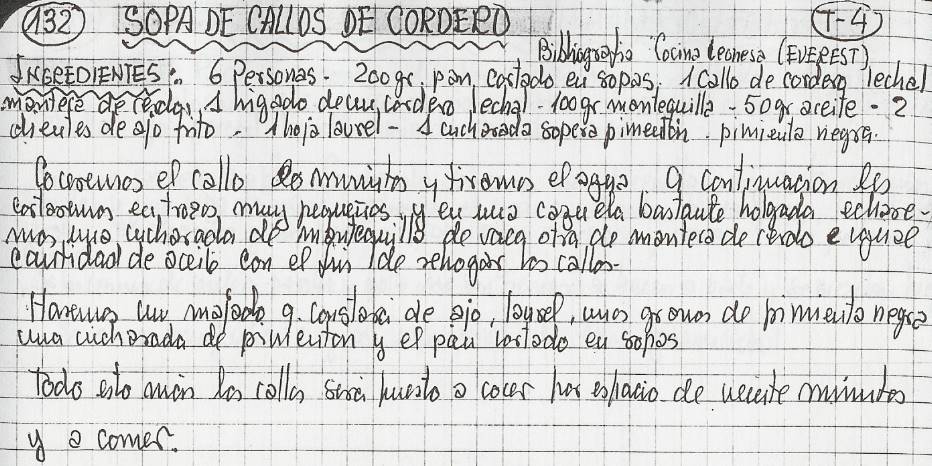 132 SOPA DE CALLOS DE CORDERO T-4
Bibliografia Cocina Leonesa (EVEREST)
INGREDIENTES: 6 Personas - 200gr. pan, cortado en sopas, 1 Callo de cordero lechal
manteca de cerdo, 1 higado de un cordero lechal - 100gr mantequilla - 50gr aceite - 2
dientes de ajo frito - 1 hoja laurel - 1 cucharada sopera pimentón. pimienta negra.
Coceremos el callo minutos y tiramos el agua, a continuacion les
cortaremos en trozos muy pequeños, y en una cazuela bastante holgada echare-
mos, una cucharada de mantequilla de vaca otra de manteca de cerdo e igual
cantidad de aceite con el fin de rehogar los callos.
Haremos un majado q. constara de ajo, laurel, unos granos de pimienta negra
una cucharada de pimenton y el pan cortado en sopas
Todo esto mas los callos sera puesto a cocer por espacio de veinte minutos
y a comer.